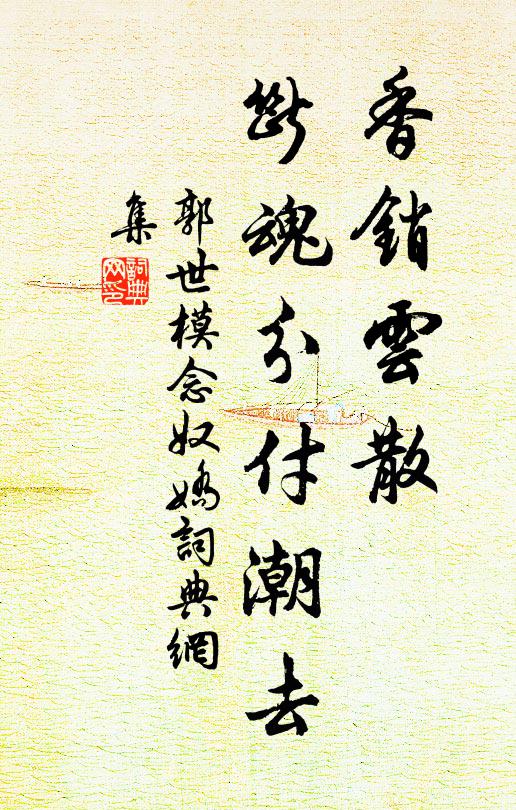 香銷雲散
斷魂分付潮去
郭世模念奴嬌詞典網
集
詞典
网印